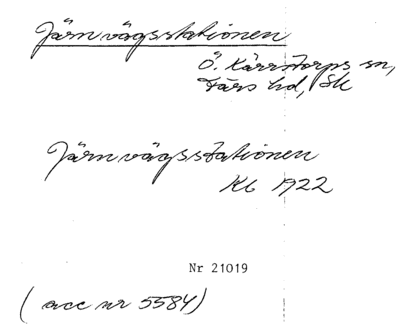 Järnvägsstationen
Ö. Kärrstorps sn,
Färs hd, Sk
Järnvägsstationen
Kb 1922
Nr 21019
(acc nr 5584)